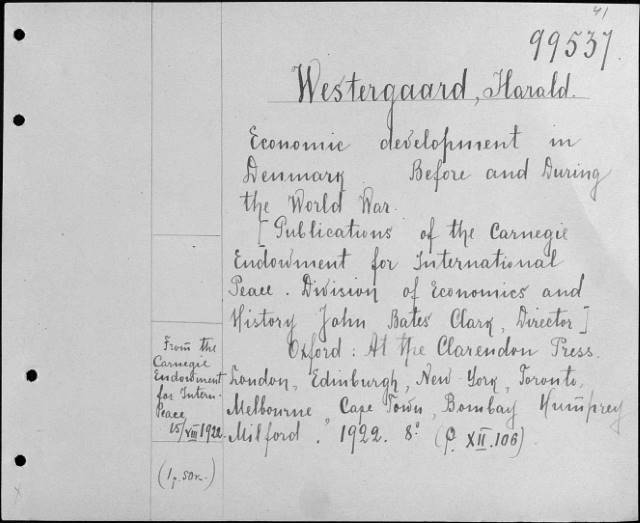 41
99537.
Westergaard, Harald.
Economic development in
Denmark Before and During
the World War.
[Publications of the Carnegie
Endowment for International
Peace. Division of Economics and
History John Bates Clark, Director]
Oxford: At the Clarendon Press.
London, Edinburgh, New York, Toronto,
Melbourne Cape Town, Bombay Humphrey
Milford. 1922. 8° (p. XII.106).
From the
Carnegie
Endowment
for Intern.
Peace
15/XIII 1922.
(1, 50k.)